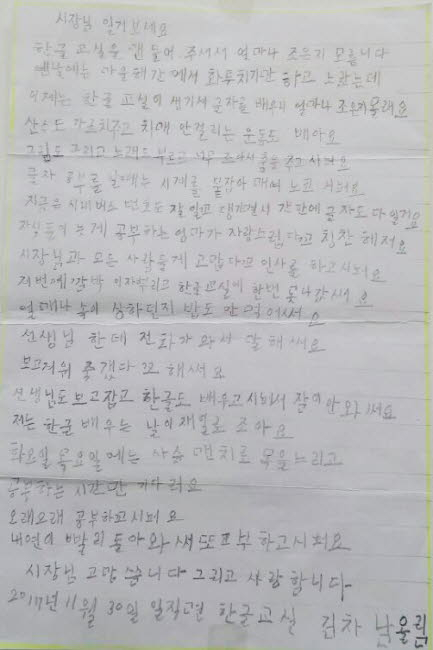 시장님 일거보세요
한글 교실을 맨들어 주서서 얼마나 조은지 모릅니다
옌날에는 마을해간에서 화투치기만 하고 노랐는데
이제는 한글 교실이 생기서 글자를 배우니 얼마나 조은지 몰래요
산수도 가르치주고 치매 안걸리는 운동도 배아요
그림도 그리고 노래도 부르고 너무 조아서 춤을 추고 시퍼요
글자 한 를 날때는 시계를 붙잡아 매여 노코 시퍼요
지금은 시내버스 번호도 잘 일고 댕기겨서 간판에 글자도 다 일거요
자식들이 늦게 공부하는 엄마가 자랑스럽다고 칭찬 해저요
시장님과 모든 사람들게 고맙다고 인사를 하고시퍼요
저번에 깜박 이자뿌리고 한글교실에 한번 못나갔써요
얼매나 속이 상하던지 밥도 안먹어써요
선생님 한데 전화가 와서 말해써요
보고저워 죽겠다고 해써요
선생님도 보고잡고 한글도 배우고시퍼서 잠이 안와써요
저는 한글 배우는 날이 재일로 조아요
화요일 목요일에는 사슴 맨치로 목을 느리고
공부하는 시간만 기다리요
오래오래 공부하고시퍼요
내연이 빨리 돌아와서 또또부 하고시퍼요
시장님 고맙습니다 그리고 사랑합니다
2017년 11월 30일 일직면 한글교실 김차난올림